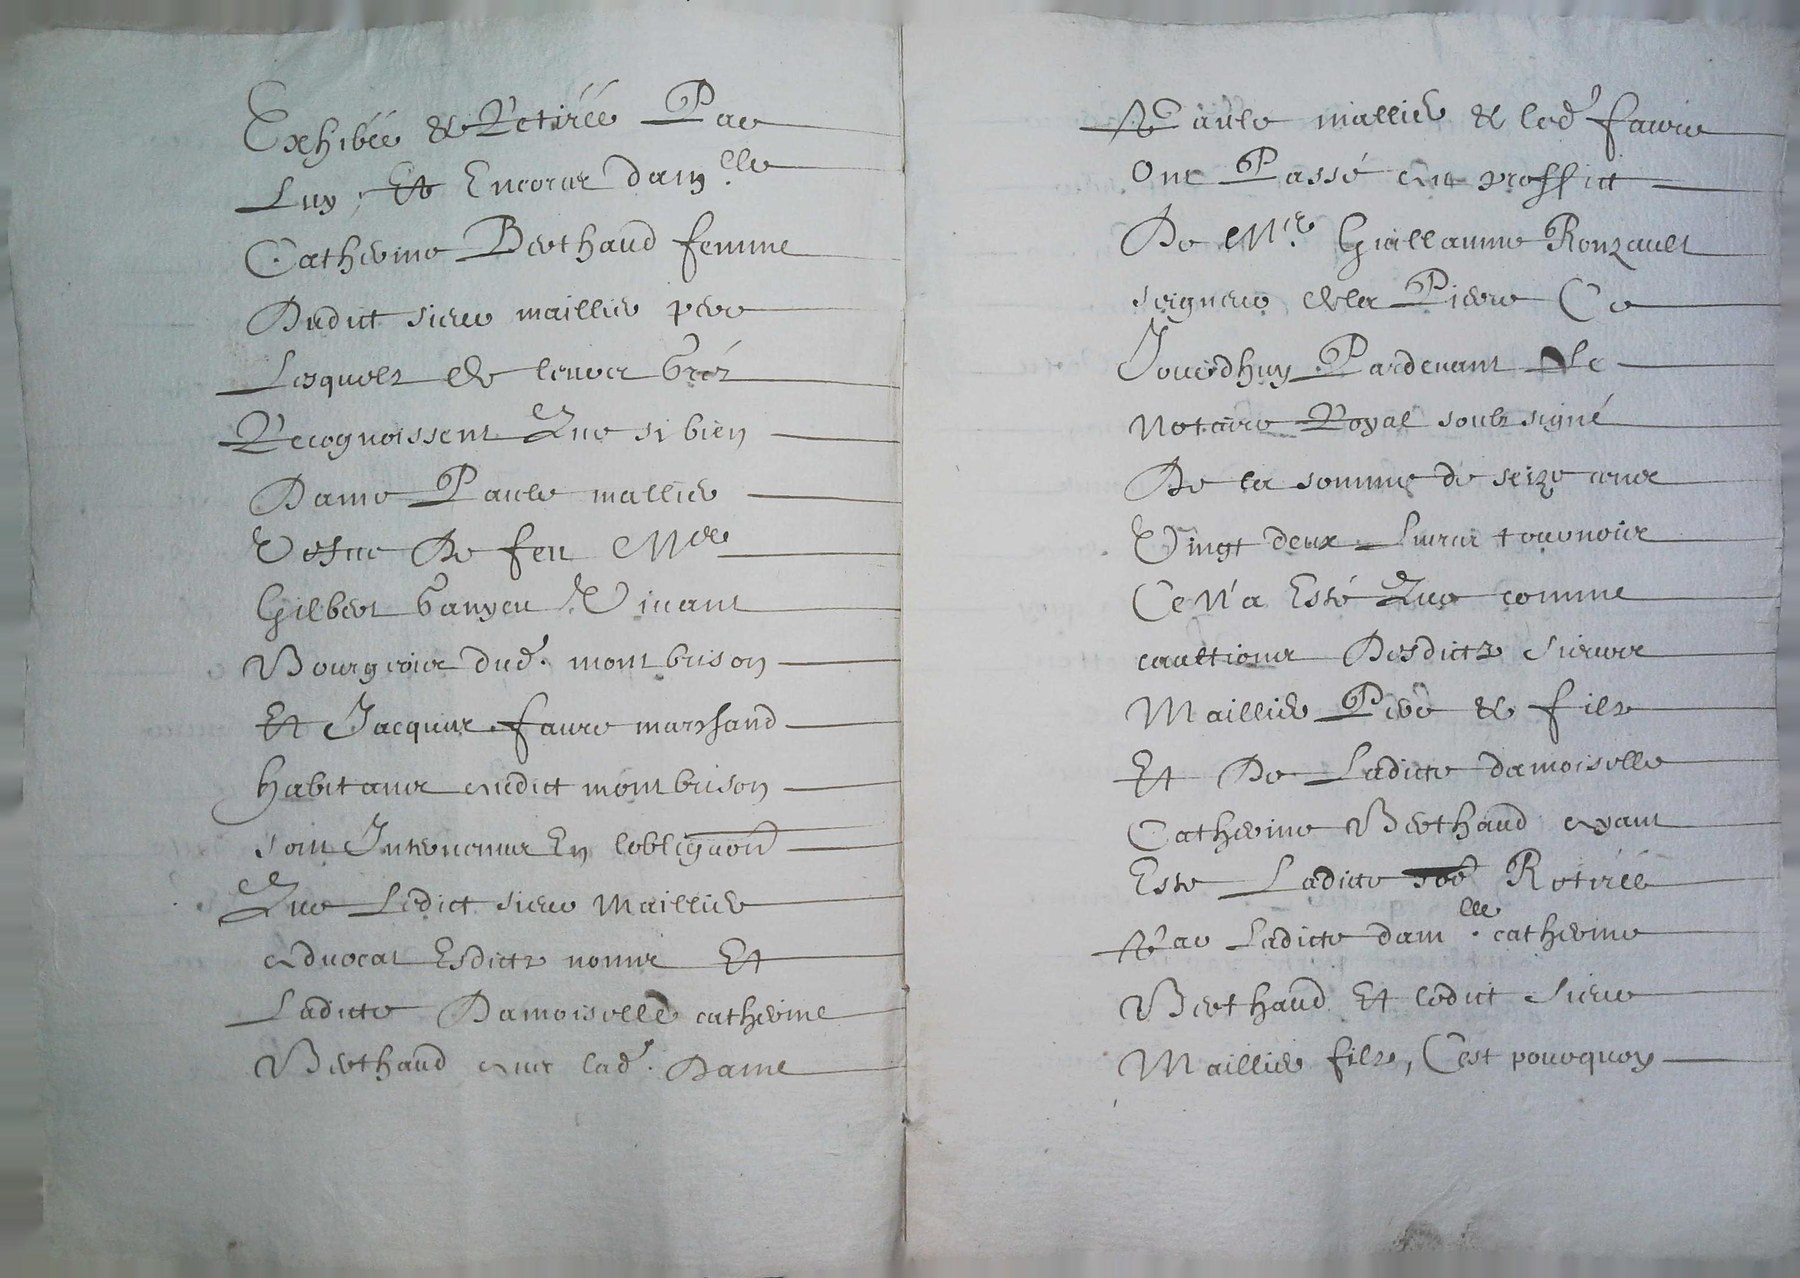 Exhibée & Retirée Par
Luy, Et Encores dam.lle
Catherine Berthaud femme
Dudict sieur maillier pere
Lesquels de leurs Grez
Recognoissent Que si bien
Dame Paule mallier
Vefue De feu Mre
Gilbert Ganyeu Viuant
Bourgeois dud. montbrison
Et Jacques faure marchand
habitans audict montbrison
sont Interuenus En lobligaon
Que Ledict sieur Maillier
aduocat Esdicts noms Et
Ladicte Damoiselle catherine
Berthaud auec lad. Dame
Paule mallier & led. faure
Ont Passé au proffict
De Mre Guillaume Ronzault
seigneur de la Piere Ce
Jourdhuy Pardeuant Le
Notaire Royal soubsigné
De la somme de seize cens
Vingt deux Liures tournois
Ce N'a Esté Que comme
caultions Desdicts sieurs
Maillier Pere & fils
Et De Ladicte damoiselle
Catherine Berthaud ayant
Esté Ladicte soe Retirée
Par Ladicte dam.lle catherine
Berthaud Et ledict Sieur
Maillier fils, C'est pourquoy